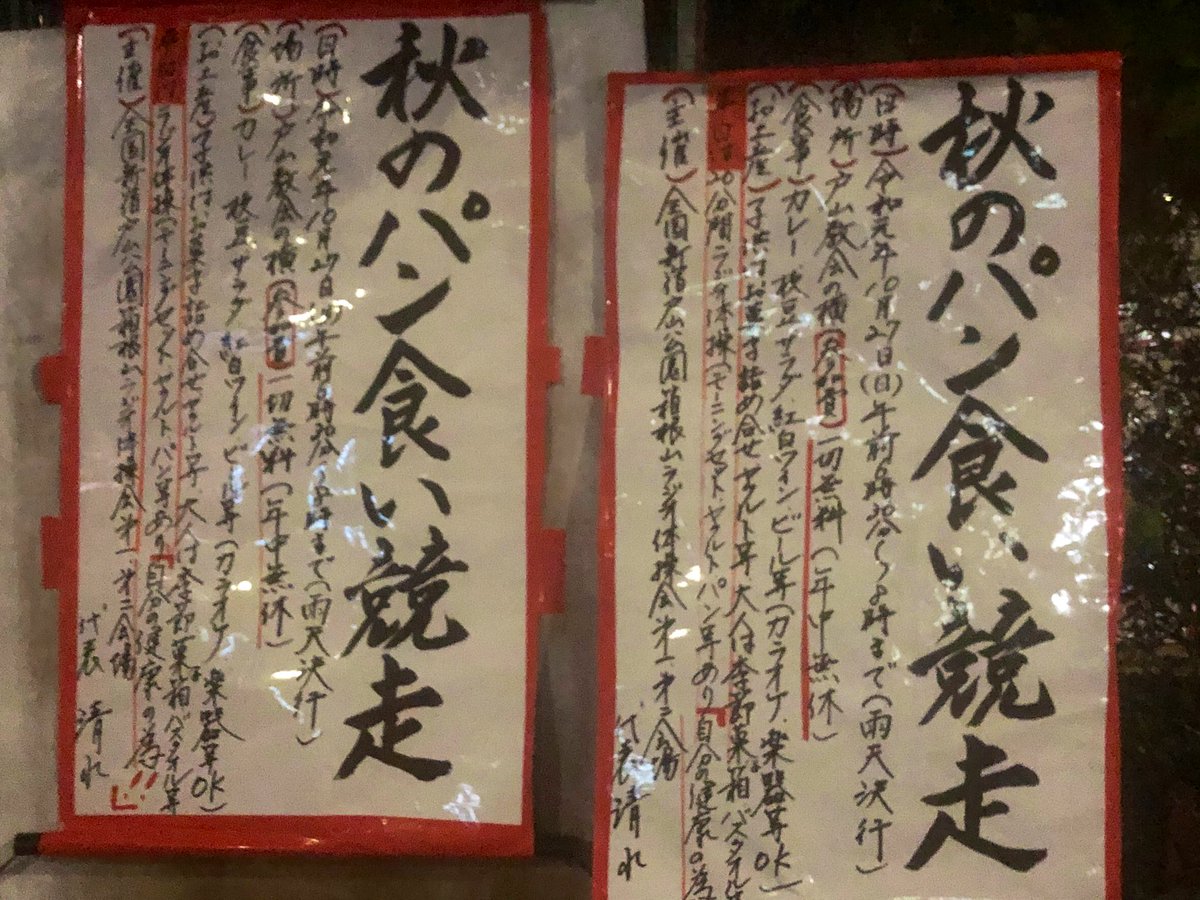 秋のパン食い競走
(日時)令和元年10月27日(日)午前6時30分〜8時まで(雨天決行)
(場所)戸山教会の横(参加賞)一切無料(年中無休)
(食事)カレー 枝豆サラダ 紅白ワイン・ビール等(カラオケ.楽器等OK)
(お土産)子供はお菓子詰め合せヤクルト等、大人は 巣箱バスタオル
20分間ラジオ体操(モーニングセット・ヤクルトパン等あり)「自分の健康の為
(主催)全国新宿戸山公園箱根山ラジオ体操会第一・第二会場
代表 清水
秋のパン食い競走
(日時)令和元年10月27日(日)午前6時30分〜8時まで(雨天決行)
(場所)戸山教会の横(参加賞)一切無料(年中無休)
(食事)カレー 枝豆サラダ 紅白ワイン・ビール等(カラオケ.楽器等OK)
(お土産)子供はお菓子詰め合せヤクルト等、大人は 巣箱バスタオル等
ラジオ体操(モーニングセット・ヤクルト・パン等あり)「自分の健康の為!!」
(主催)全国新宿戸山公園箱根山ラジオ体操会第一・第二会場
代表 清水